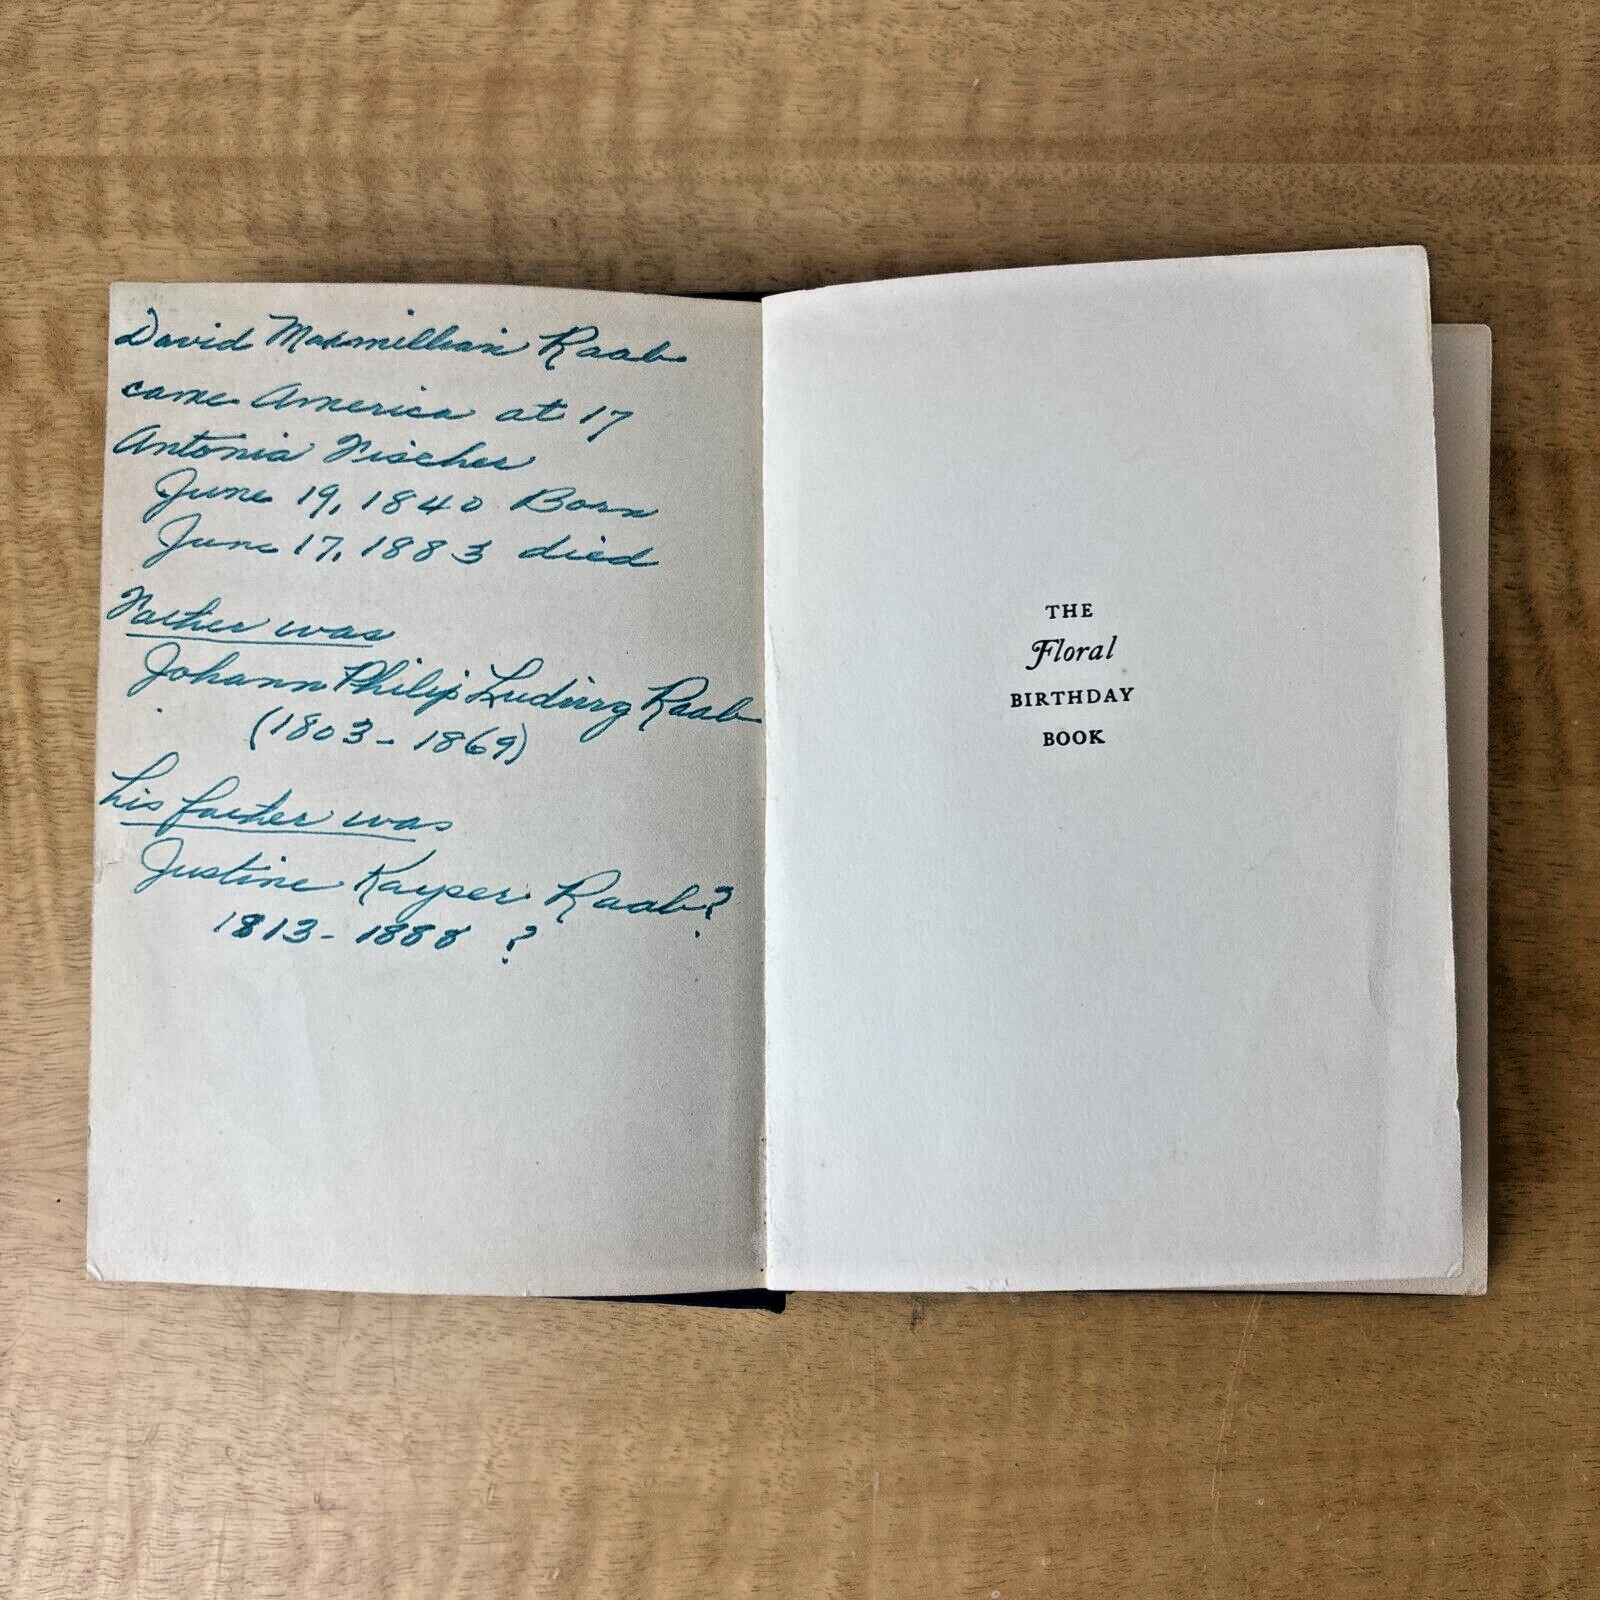 David Maxmillian Raab
came America at 17
Antonia Fischer
June 19, 1840 Born
June 17, 1883 died
Father was
Johann Philip Ludwig Raab
(1803-1869)
his father was
Justine Kayser Raab?
1813-1888 ?
THE
Floral
BIRTHDAY
BOOK